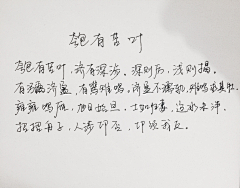 匏有苦叶
匏有苦叶，济有深涉。深则厉，浅则揭。
有瀰济盈，有鷕雉鸣。济盈不濡轨，雉鸣求其牡。
雍雍鸣雁，旭日始旦。士如归妻，迨冰未泮。
招招舟子，人涉卬否。卬须我友。